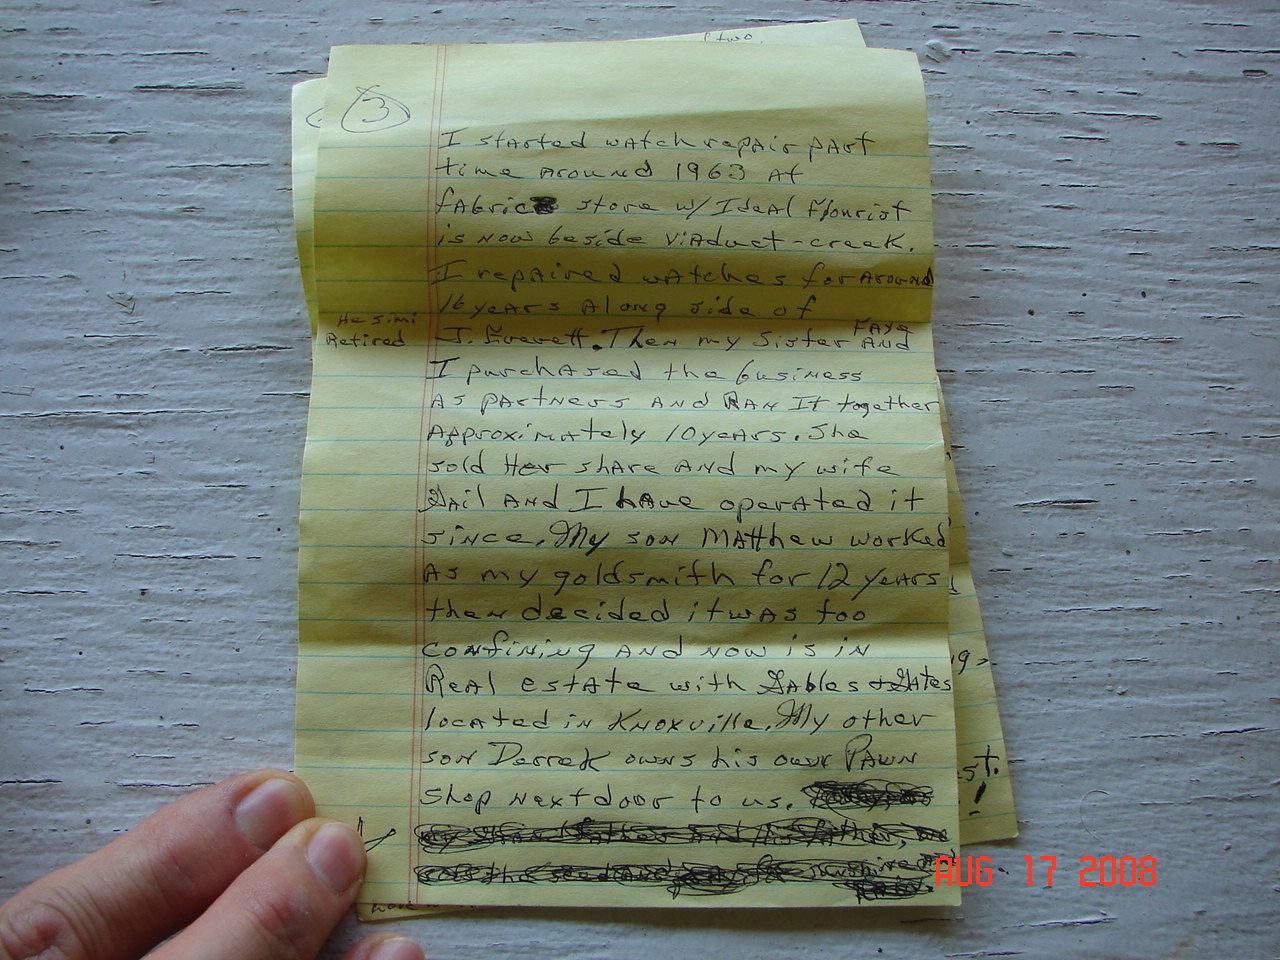 two.
3
I started watch repair part
time around 1963 at
fabric store w/Ideal Flourist
is now beside viaduct-creek.
I repaired watches for around
16 years along side of
He simi
Retired
J. Everett. Then my sister Faye and
I purchased the business
as partners and Ran It together
Approximately 10 years. She
sold Her share and my wife
Gail and I have operated it
since. My son Matthew worked
as my goldsmith for 12 years
then decided it was too
confining and now is in
Real estate with Gables & Gates
located in Knoxville. My other
son Derrek owns his own Pawn
shop next door to us.
AUG 17 2008